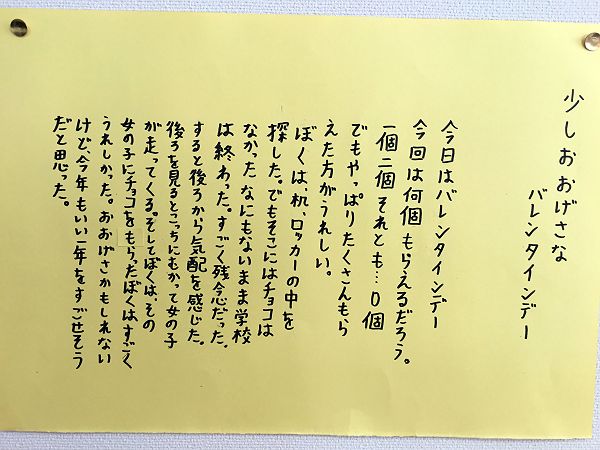 少しおおげさな
バレンタインデー
今日はバレンタインデー
今回は何個もらえるだろう。
一個二個それとも…0個
でもやっぱりたくさんもら
えた方がうれしい。
ぼくは、机、ロッカーの中を
探した。でもそこにはチョコは
なかったなにもないまま学校
は終わった。すごく残念だった。
すると後ろから気配を感じた。
後ろを見るとこっちにむかって女の子
が走ってくる。そしてぼくは、その
女の子にチョコをもらったぼくはすごく
うれしかった。おおげさかもしれない
けど、今年もいい一年をすごせそう
だと思った。